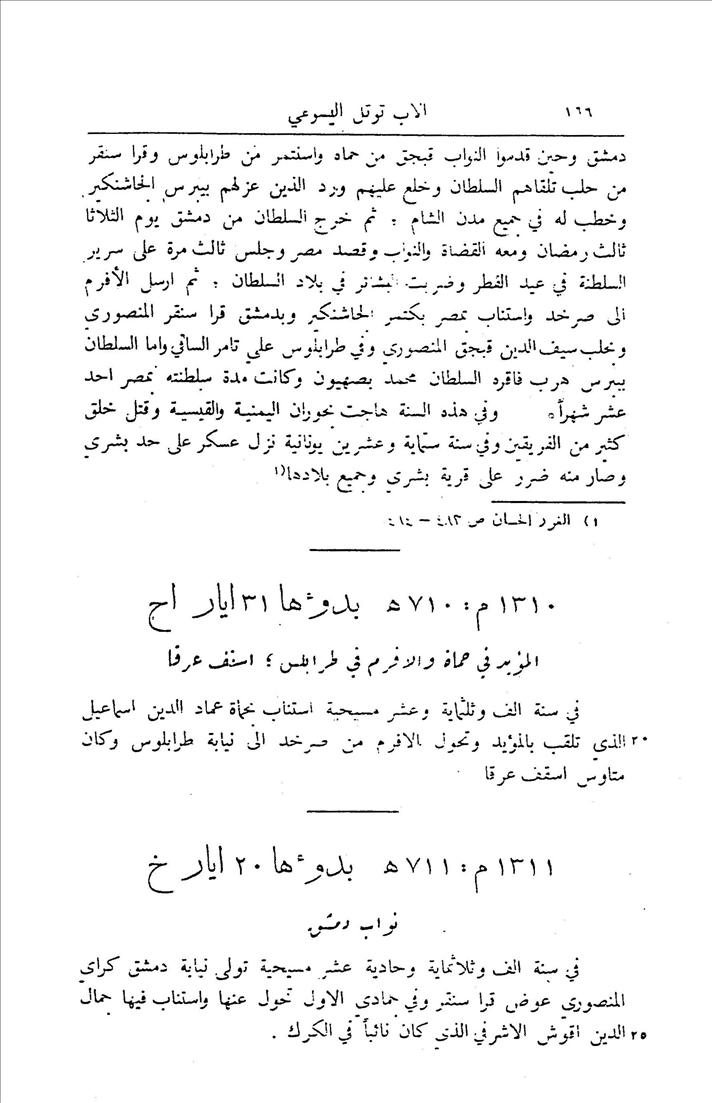 ١٦٦ الاب توتل اليسوعي
دمشق وحين قدموا النواب قبجق من حماه واستتمر من طرابلوس وقرا سنقر
من حلب تلقاهم السلطان وخلع عليهم ورد الذين عزلهم بيبرس الجاشنكير
وخطب له في جميع مدن الشام ؛ ثم خرج السلطان من دمشق يوم الثلاثا
ثالث رمضان ومعه القضاة والنواب وقصد مصر وجلس ثالث مرة على سرير
السلطنة في عيد الفطر وضربت البشائر في بلاد السلطان ؛ ثم ارسل الأفرم
الى صرخد واستناب بمصر بكتمر الجاشنكير وبدمشق قرا سنقر المنصوري
وبحلب سيف الدين قبجق المنصوري وفي طرابلوس علي تامر الساقي واما السلطان
بيبرس هرب فاقره السلطان محمد بصهيون وكانت مدة سلطنته بمصر احد
عشر شهراً. وفي هذه السنة هاجت بحوران اليمنية والقيسية وقتل خلق
كثير من الفريقين وفي سنة ستماية وعشرين يونانية نزل عسكر على حد بشري
وصار منه ضرر على قرية بشري وجميع بلادها١)
١) الغرر الحسان ص ٤٨٣ – ٤٨٤
١٣١٠ م : ٧١٠ ه بدوءها ٣١ ايار اج
المؤيد في حماة والافرم في طرابلس ؛ اسقف عرقا
في سنة الف وثلثماية وعشر مسيحية استناب بحماة عماد الدين اسماعيل
٢٠ الذي تلقب بالمؤيد وتحول الافرم من صرخد الى نيابة طرابلوس وكان
متاوس اسقف عرقا
١٣١١ م : ٧١١ ه بدوءها ٢٠ ايار خ
نواب دمشق
في سنة الف وثلاثماية وحادية عشر مسيحية تولى نيابة دمشق كراي
المنصوري عوض قرا سنقر وفي جمادي الاول تحول عنها واستناب فيها جمال
٢٥ الدين اقوش الاشرفي الذي كان نائباً في الكرك .